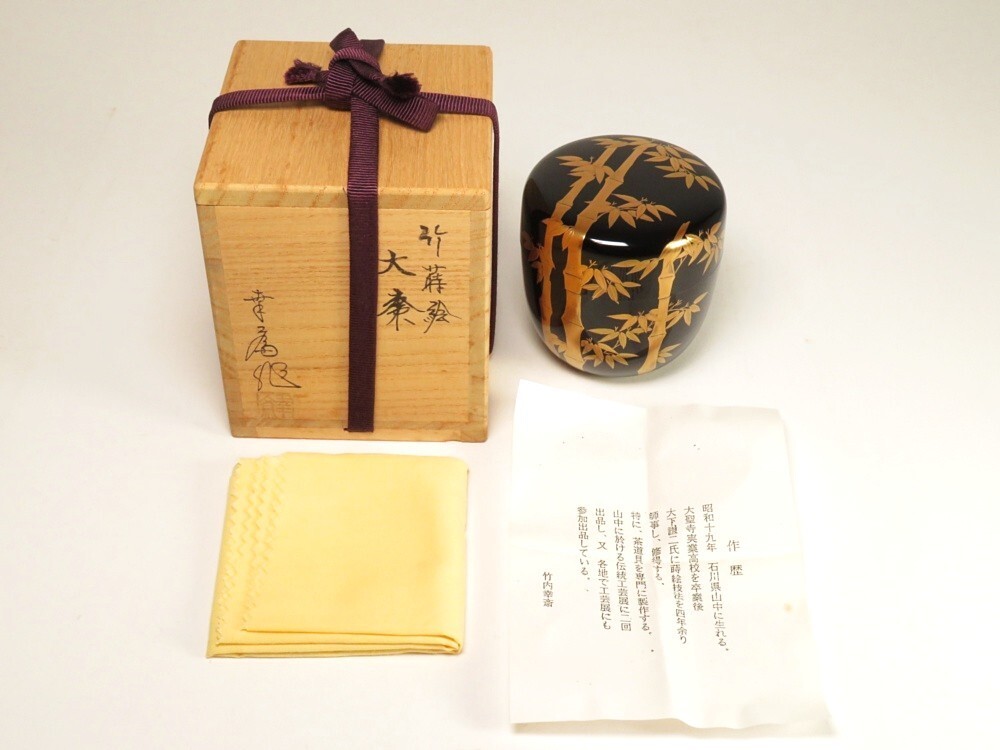 竹蒔絵
大棗
幸斎作
作歴
昭和十九年 石川県山中に生れる。
大聖寺実業高校を卒業後
大下進二氏に蒔絵技法を四年余り
師事し、修得する。
特に、茶道具を専門に製作する。
山中に於ける伝統工芸展に二回
出品し、又 各地で工芸展にも
参加出品している。
竹内幸斎